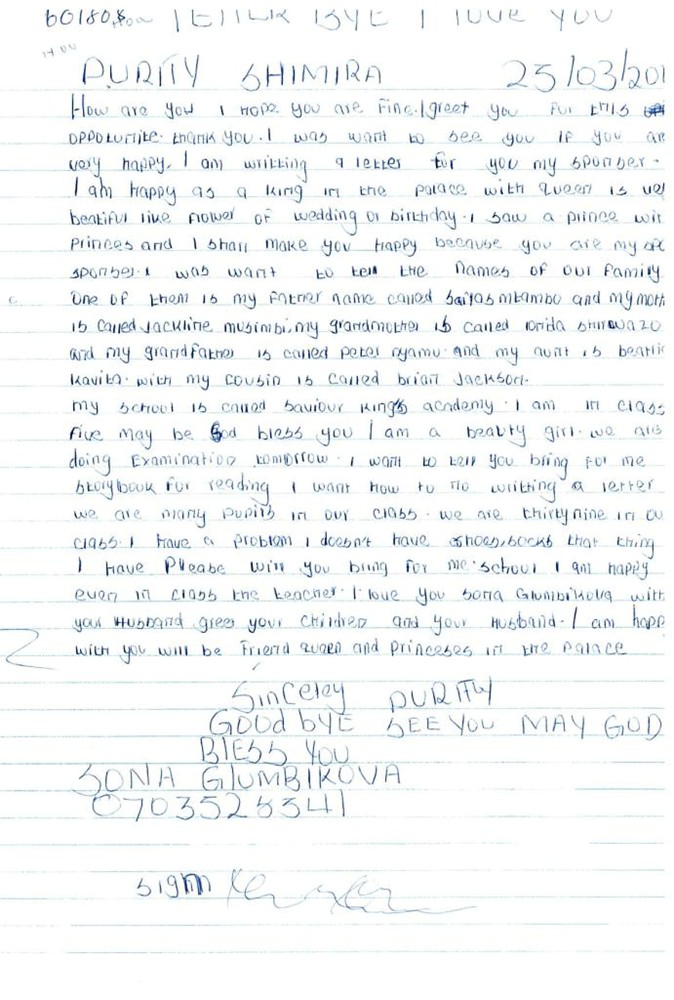 601808 LETTER BYE I LOVE YOU
PURITY SHIMIRA 25/03/201
How are you I hope you are fine. I greet you for this
opportunite. thank you. I was want to see you if you are
very happy. I am writting a letter for you my sponser.
I am happy as a king in the palace with queen is ver
beatiful like flower of wedding or birthday. I saw a prince wit
princes and I shall make you happy because you are my
sponser. I was want to tell the names of our family
One of them is my father name called saifas mtambo and my moth
is called Jackline musimbi, my grandmother is called lorida shirwazo
and my grandfather is called peter nyamu. and my aunt is beatric
kavita. with my cousin is called brian Jackson.
my school is called saviour kings academy. I am in class
five may be God bless you I am a beauty girl. we are
doing Examination tomorrow. I want to tell you bring for me
storybook for reading I want how to no writting a letter
we are many pupils in our class. we are thirtynine in ou
class. I have a problem I doesn't have shoes, socks that thing
I have Please will you bring for me. school I am happy
even in class the teacher. I love you sona Glumbikova with
your Husband gree your children and your Husband. I am happ
with you will be friend queen and princeses in the palace
Sinceley PURITY
GOOd bYE SEE YOU MAY GOD
BLESS YOU
SONA GLUMBIKOVA
0703528341
sign